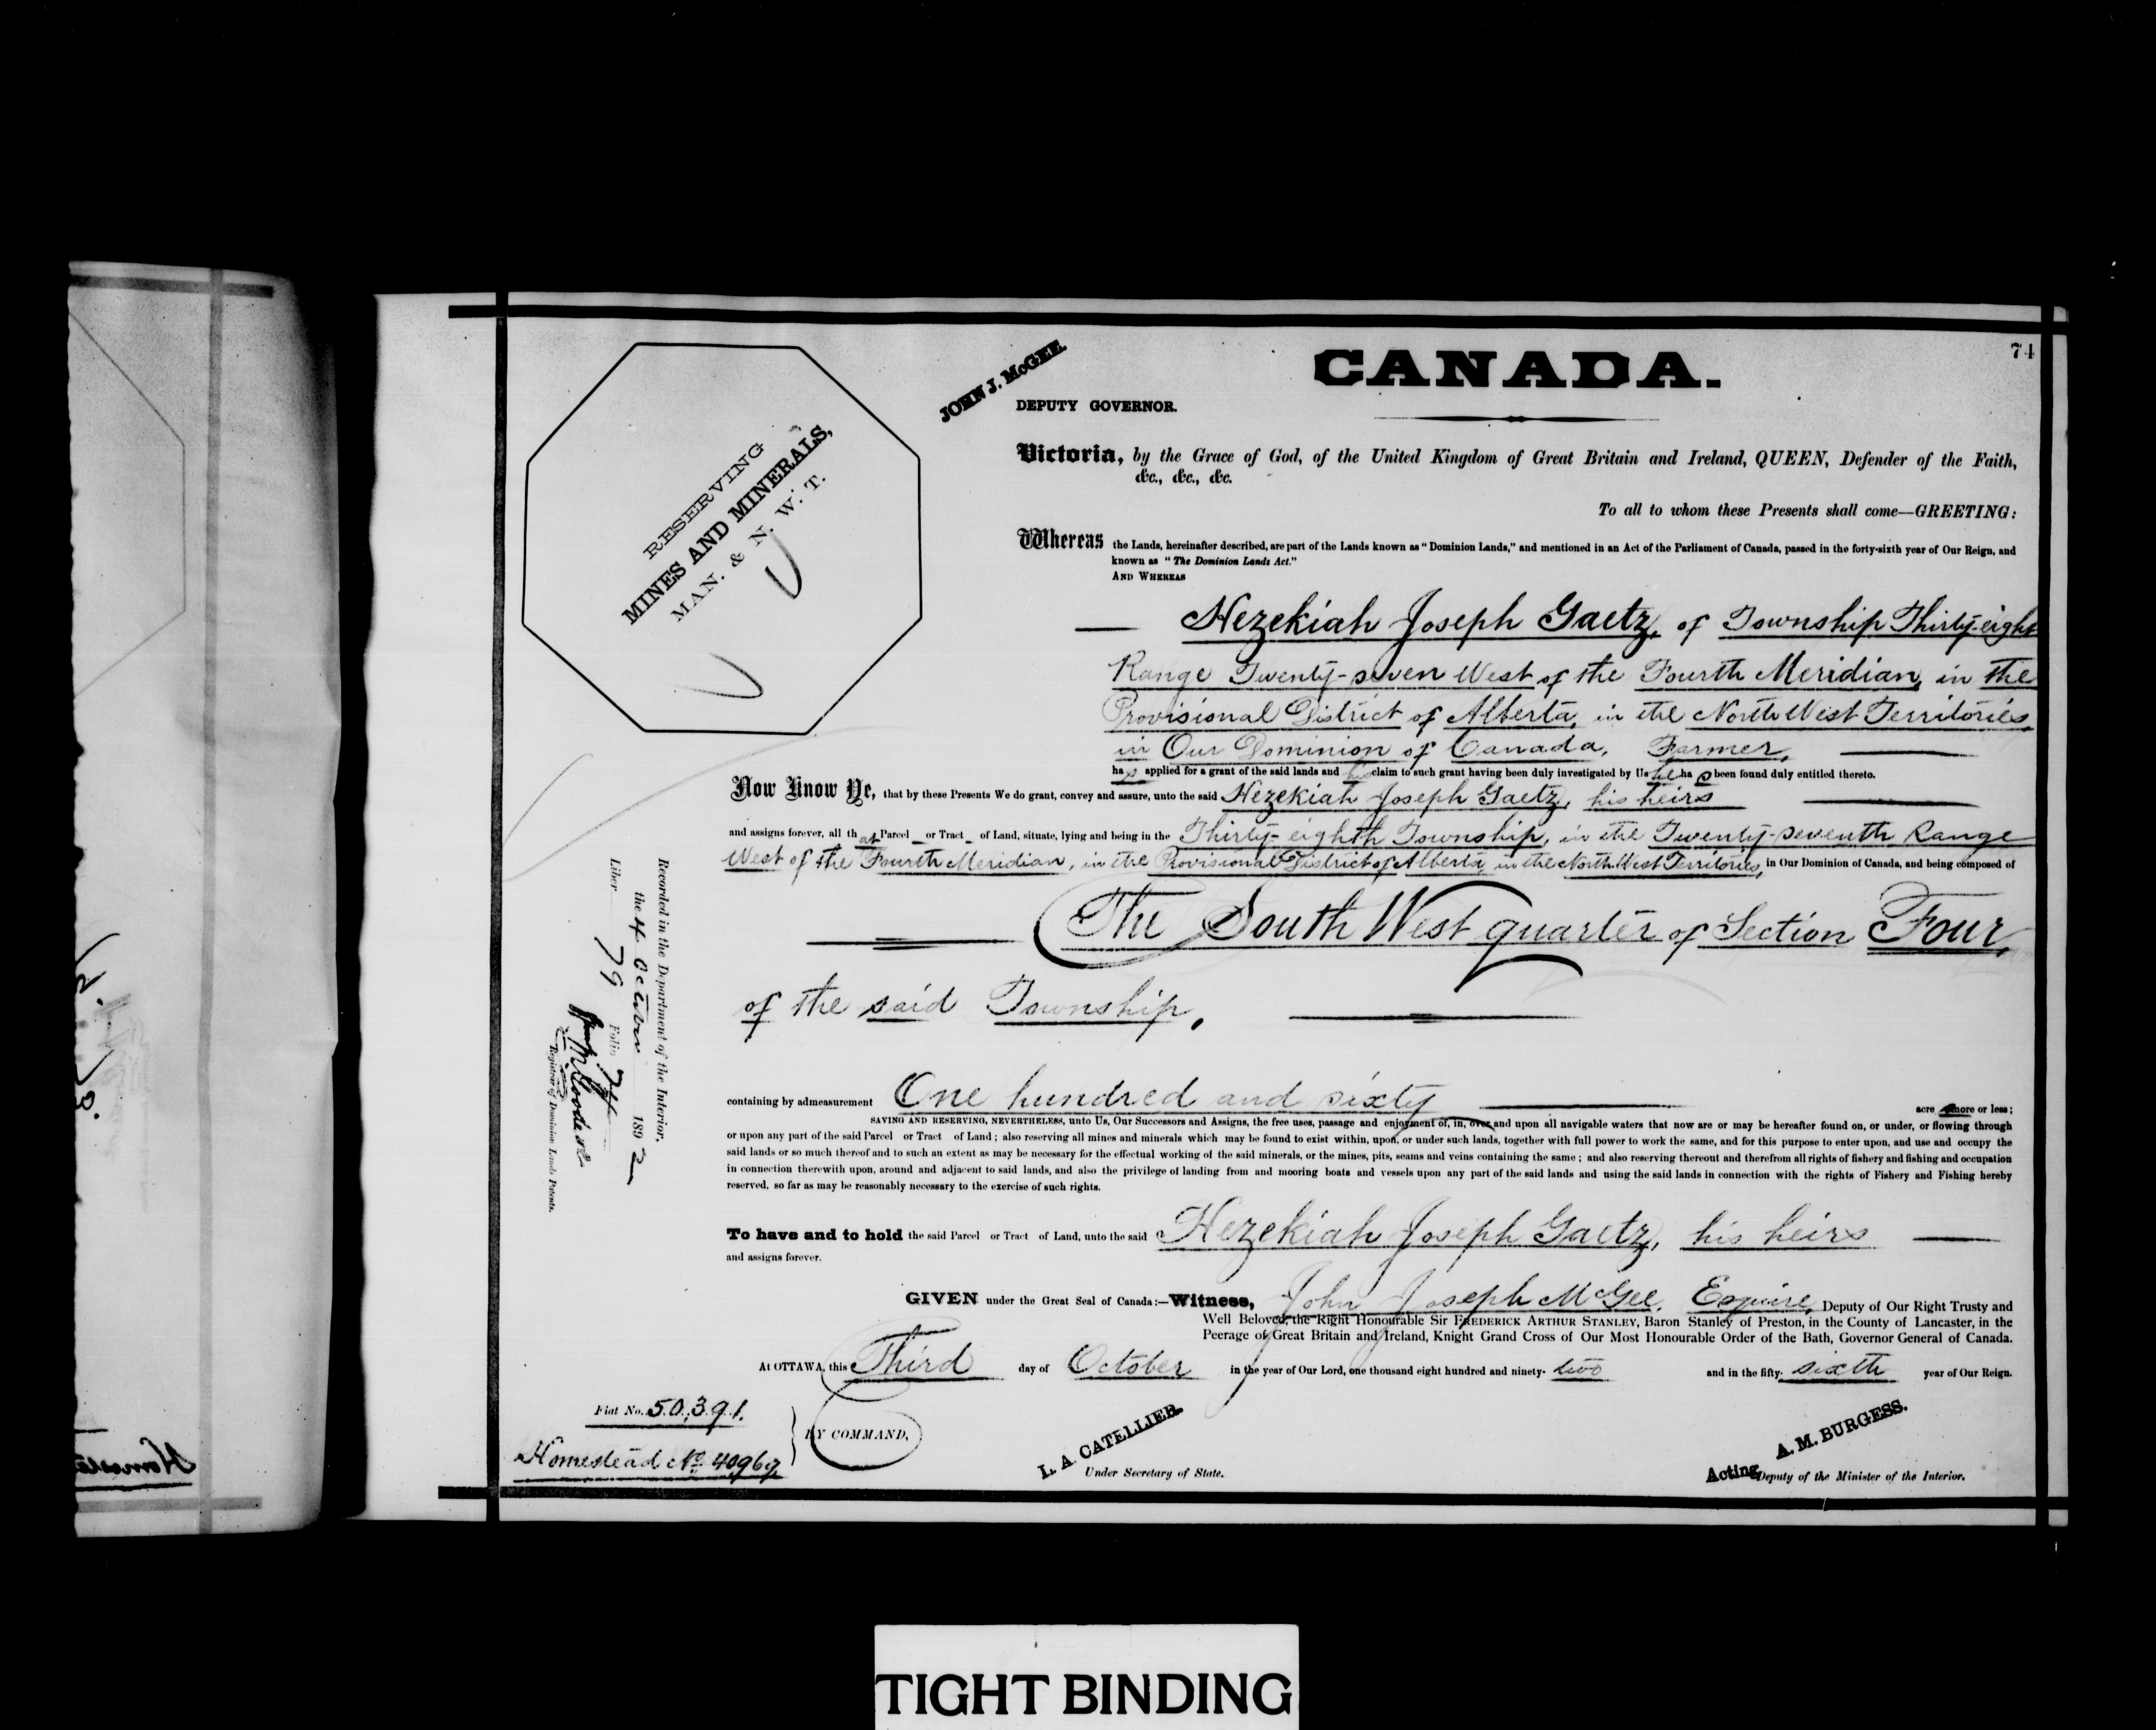 74
CANADA.
JOHN J. McGEE.
DEPUTY GOVERNOR.
RESERVING
MINES AND MINERALS,
MAN. & N. W. T.
Victoria, by the Grace of God, of the United Kingdom of Great Britain and Ireland, QUEEN, Defender of the Faith,
&c., &c., &c.
To all to whom these Presents shall come—GREETING:
Whereas the Lands, hereinafter described, are part of the Lands known as "Dominion Lands," and mentioned in an Act of the Parliament of Canada, passed in the forty-sixth year of Our Reign, and
known as "The Dominion Lands Act."
AND WHEREAS
Hezekiah Joseph Gaetz, of Township Thirty-eight
Range Twenty-seven West of the Fourth Meridian, in the
Provisional District of Alberta, in the North West Territories,
in Our Dominion of Canada, Farmer,
has applied for a grant of the said lands and his claim to such grant having been duly investigated by Us he has been found duly entitled thereto.
Now Know Ye, that by these Presents We do grant, convey and assure, unto the said Hezekiah Joseph Gaetz, his heirs
and assigns forever, all that Parcel or Tract of Land, situate, lying and being in the Thirty-eighth Township, in the Twenty-seventh Range
West of the Fourth Meridian, in the Provisional District of Alberta, in the North West Territories, in Our Dominion of Canada, and being composed of
The South West quarter of Section Four,
of the said Township.
containing by admeasurement One hundred and sixty acre more or less;
SAVING AND RESERVING, NEVERTHELESS, unto Us, Our Successors and Assigns, the free uses, passage and enjoyment of, in, over and upon all navigable waters that now are or may be hereafter found on, or under, or flowing through
or upon any part of the said Parcel or Tract of Land; also reserving all mines and minerals which may be found to exist within, upon, or under such lands, together with full power to work the same, and for this purpose to enter upon, and use and occupy the
said lands or so much thereof and to such an extent as may be necessary for the effectual working of the said minerals, or the mines, pits, seams and veins containing the same; and also reserving thereout and therefrom all rights of fishery and fishing and occupation
in connection therewith upon, around and adjacent to said lands, and also the privilege of landing from and mooring boats and vessels upon any part of the said lands and using the said lands in connection with the rights of Fishery and Fishing hereby
reserved, so far as may be reasonably necessary to the exercise of such rights.
To have and to hold the said Parcel or Tract of Land, unto the said Hezekiah Joseph Gaetz, his heirs
and assigns forever.
GIVEN under the Great Seal of Canada:—Witness, John Joseph McGee, Esquire, Deputy of Our Right Trusty and
Well Beloved, the Right Honourable Sir FREDERICK ARTHUR STANLEY, Baron Stanley of Preston, in the County of Lancaster, in the
Peerage of Great Britain and Ireland, Knight Grand Cross of Our Most Honourable Order of the Bath, Governor General of Canada.
At OTTAWA, this Third day of October in the year of Our Lord, one thousand eight hundred and ninety-two and in the fifty-sixth year of Our Reign.
Fiat No. 50,391.
Homestead No. 40967
BY COMMAND,
L. A. CATELLIER.
Under Secretary of State.
A. M. BURGESS.
Acting Deputy of the Minister of the Interior.
Recorded in the Department of the Interior,
the 4 October 1892
Liber 79 Folio 74
Registrar of Dominion Lands Patents.
TIGHT BINDING